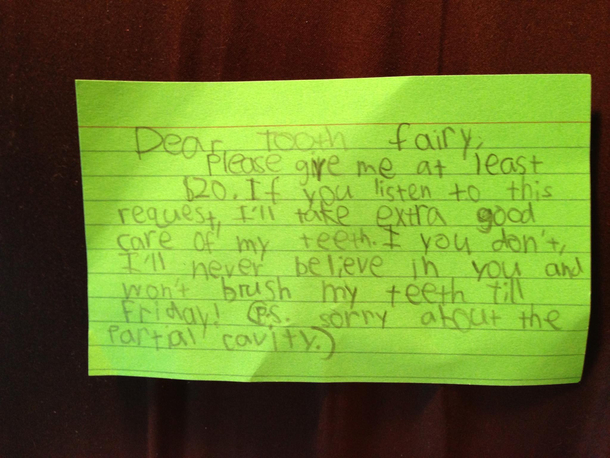 Dear tooth fairy,
Please give me at least
$20. If you listen to this
request, I'll take extra good
care of my teeth. I you don't,
I'll never believe in you and
won't brush my teeth till
Friday! (P.S. sorry about the
partial cavity.)